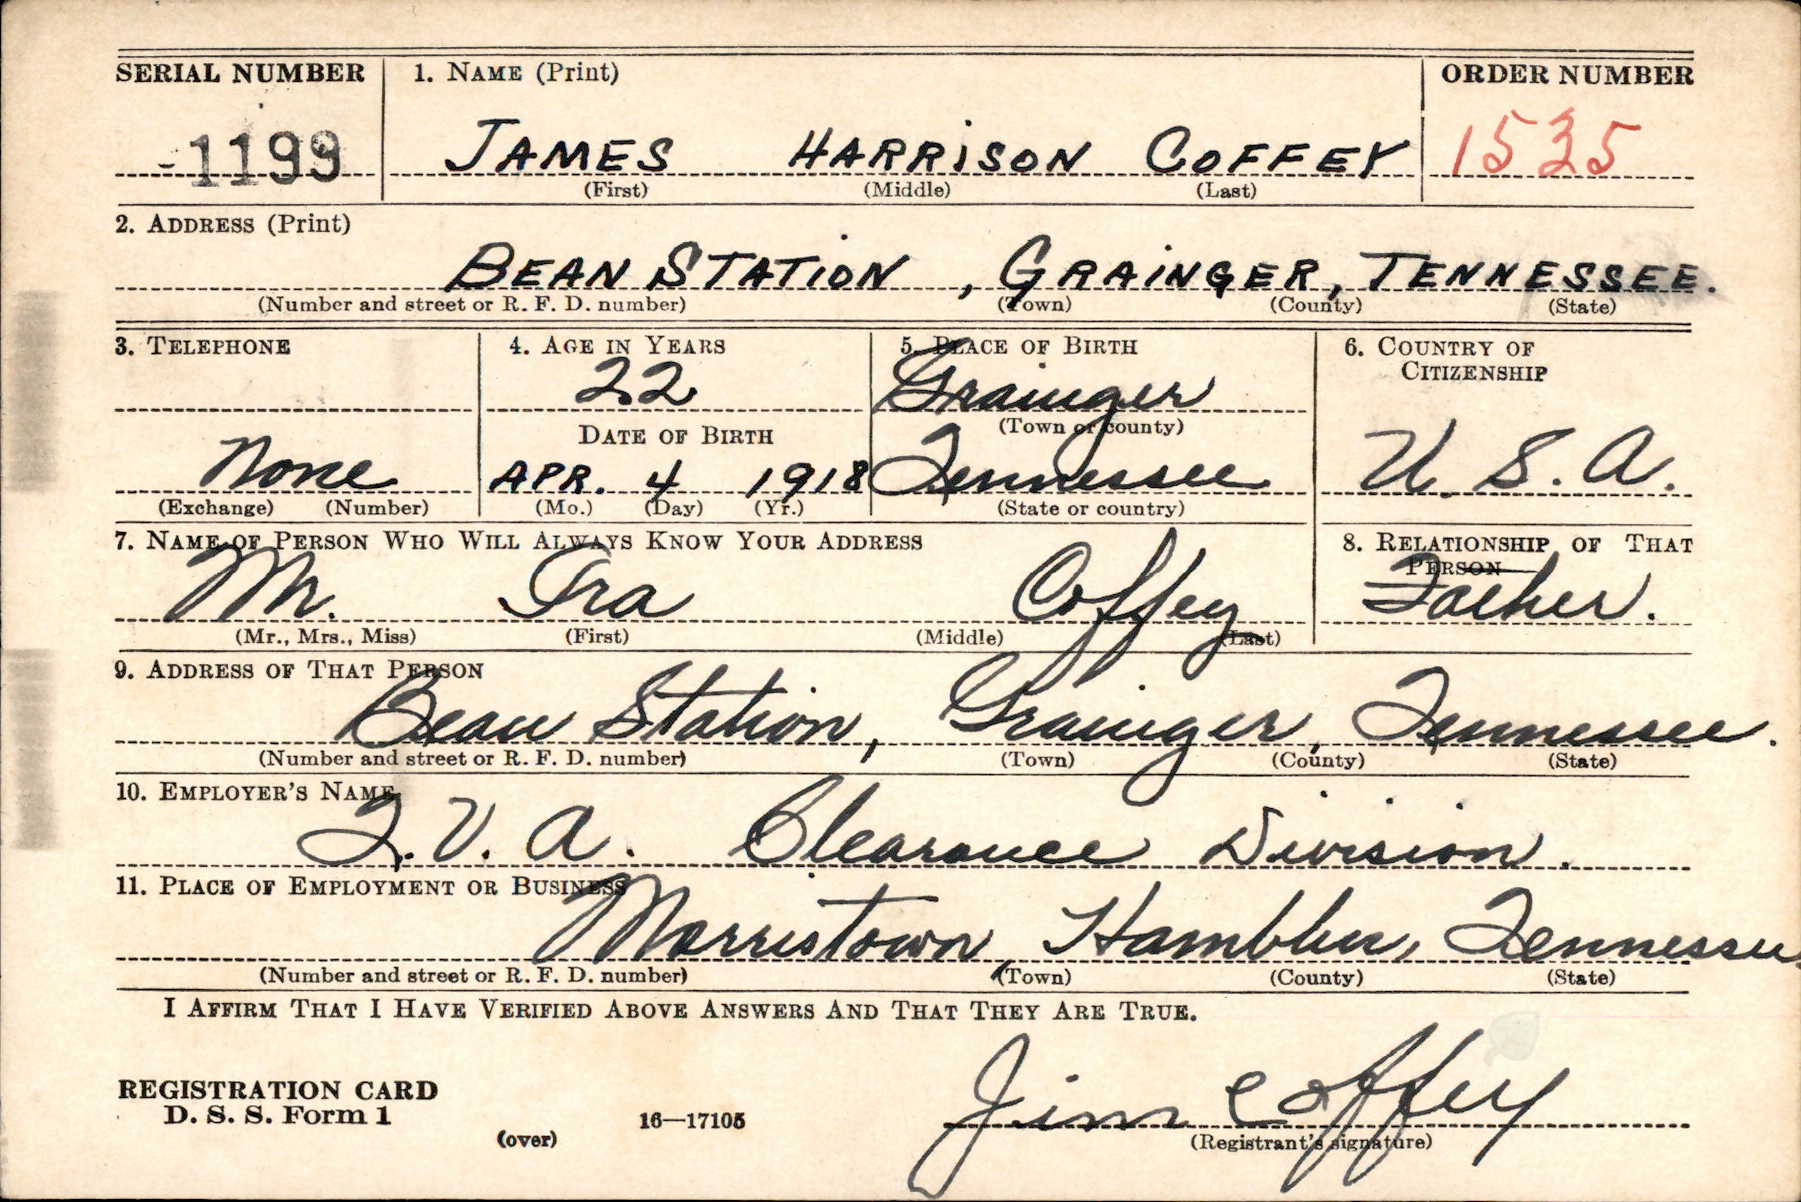 SERIAL NUMBER 1. NAME (Print) ORDER NUMBER
1199 JAMES HARRISON COFFEY 1535
(First) (Middle) (Last)
2. ADDRESS (Print)
BEAN STATION, GRAINGER, TENNESSEE.
(Number and street or R. F. D. number) (Town) (County) (State)
3. TELEPHONE 4. AGE IN YEARS 5. PLACE OF BIRTH 6. COUNTRY OF
CITIZENSHIP
22 Grainger
DATE OF BIRTH (Town or county)
None APR. 4 1918 Tennessee U. S. A.
(Exchange) (Number) (Mo.) (Day) (Yr.) (State or country)
7. NAME OF PERSON WHO WILL ALWAYS KNOW YOUR ADDRESS 8. RELATIONSHIP OF THAT
PERSON
Mr. Ira Coffey Father.
(Mr., Mrs., Miss) (First) (Middle) (Last)
9. ADDRESS OF THAT PERSON
Bean Station, Grainger, Tennessee.
(Number and street or R. F. D. number) (Town) (County) (State)
10. EMPLOYER'S NAME
T. V. A. Clearance Division.
11. PLACE OF EMPLOYMENT OR BUSINESS
Morristown, Hamblen, Tennessee.
(Number and street or R. F. D. number) (Town) (County) (State)
I AFFIRM THAT I HAVE VERIFIED ABOVE ANSWERS AND THAT THEY ARE TRUE.
REGISTRATION CARD
D. S. S. Form 1 16—17105 Jim Coffey
(over) (Registrant's signature)